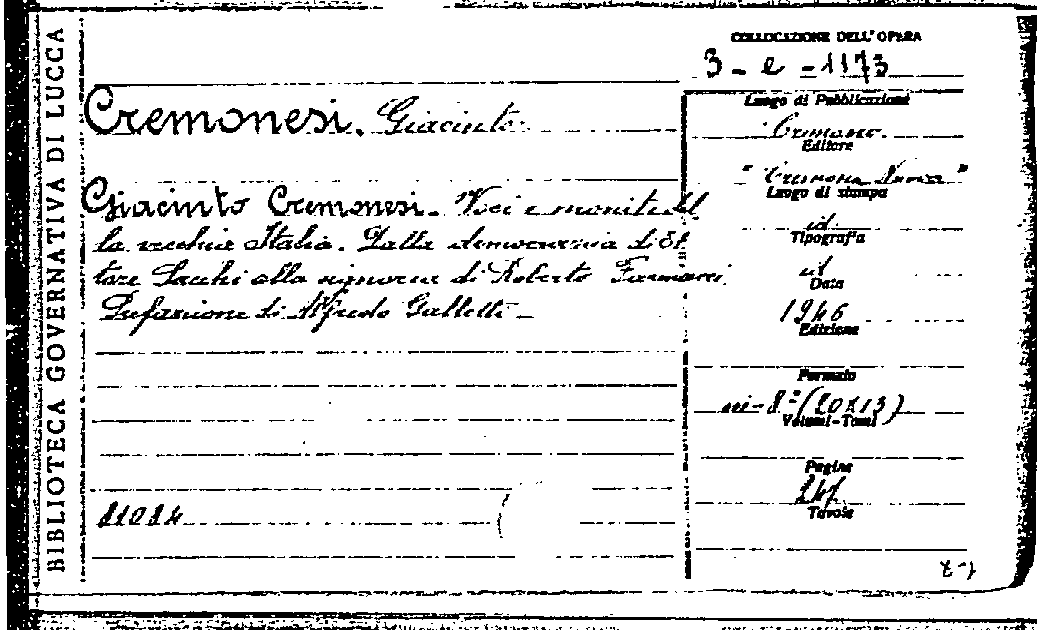 BIBLIOTECA GOVERNATIVA DI LUCCA
COLLOCAZIONE DELL'OPERA
3 - e - 1173
Cremonesi. Giacinto.
Giacinto Cremonesi. Voci e moniti del
la vecchia Italia. Dalla democrazia di Et
tore Sacchi alla signoria di Roberto Farinacci.
Prefazione di Alfredo Galletti -
81084
Luogo di Pubblicazione
Cremona.
Editore
"Cremona Nuova"
Luogo di stampa
id
Tipografia
id
Data
1946
Edizione
Formato
in-8º (20x13)
Volumi-Tomi
Pagine
247
Tavole